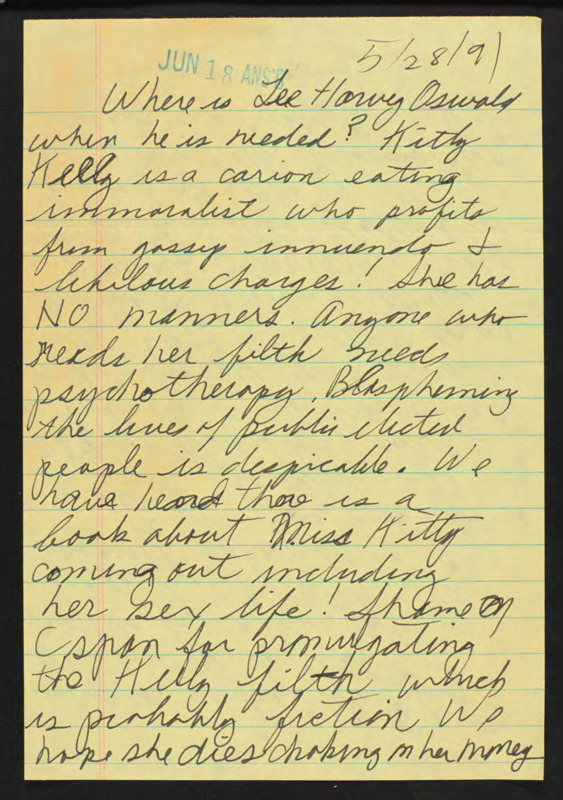 JUN 18 ANS'D
5/28/91
Where is Lee Harvey Oswald
when he is needed? Kitty
Kelly is a carion eating
immoralist who profits
from gossip innuendo &
libilous charges! She has
NO manners. Anyone who
reads her filth needs
psychotherapy. Blaspheming
the lives of public elected
people is despicable. We
have heard there is a
book about Miss Kitty
coming out including
her sex life! Shame on
Cspan for promulgating
the Kelly filth which
is probably fiction We
hope she dies choking on her money